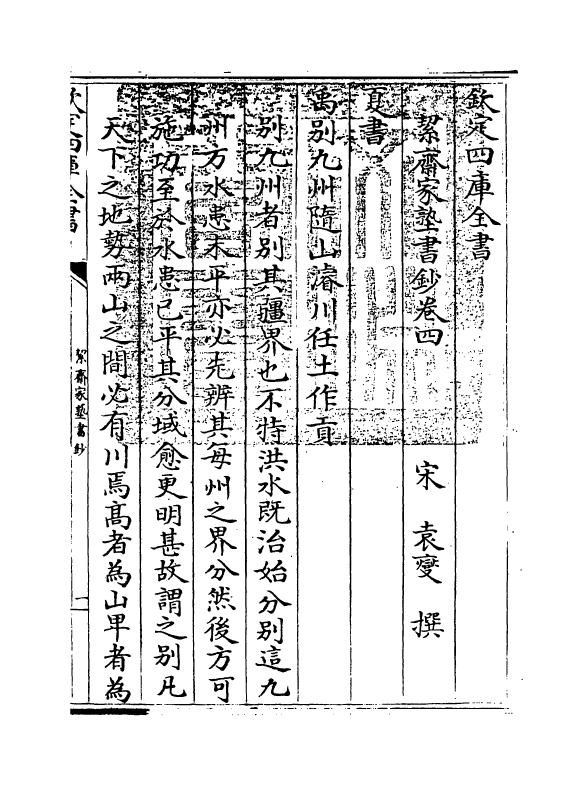 欽定四庫全書
絜齋家塾書鈔卷四
宋 袁燮 撰
夏書
禹別九州隨山濬川任土作貢
別九州者別其疆界也不特洪水既治始分別這九
州方水患未平亦必先辨其每州之界分然後方可
施功至於水患已平其分域愈更明甚故謂之別凡
天下之地勢兩山之間必有川焉髙者為山卑者為
欽定四庫全書
絜齋家塾書鈔
一